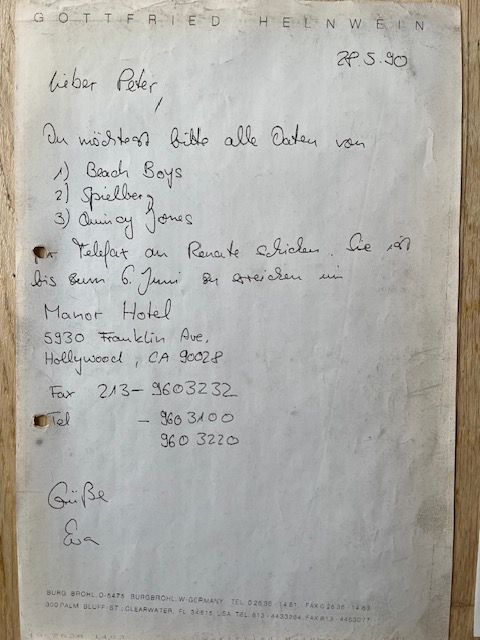 GOTTFRIED HELNWEIN
28.5.90
lieber Peter,
Du möchtest bitte alle Daten von
1) Beach Boys
2) Spielberg
3) Quincy Jones
per Telefax an Renate schicken. Sie ist
bis zum 6. Juni zu erreichen im
Manor Hotel
5930 Franklin Ave,
Hollywood, CA 90028
Fax 213-9603232
Tel - 9603100
9603220
Grüße
Eva
BURG BROHL, D-5475 BURGBROHL, W-GERMANY, TEL 0 26 36 - 14 61, FAX 0 26 36 - 14 63
300 PALM BLUFF-ST., CLEARWATER, FL 34615 USA TEL 813-4433394, FAX 813-4463077